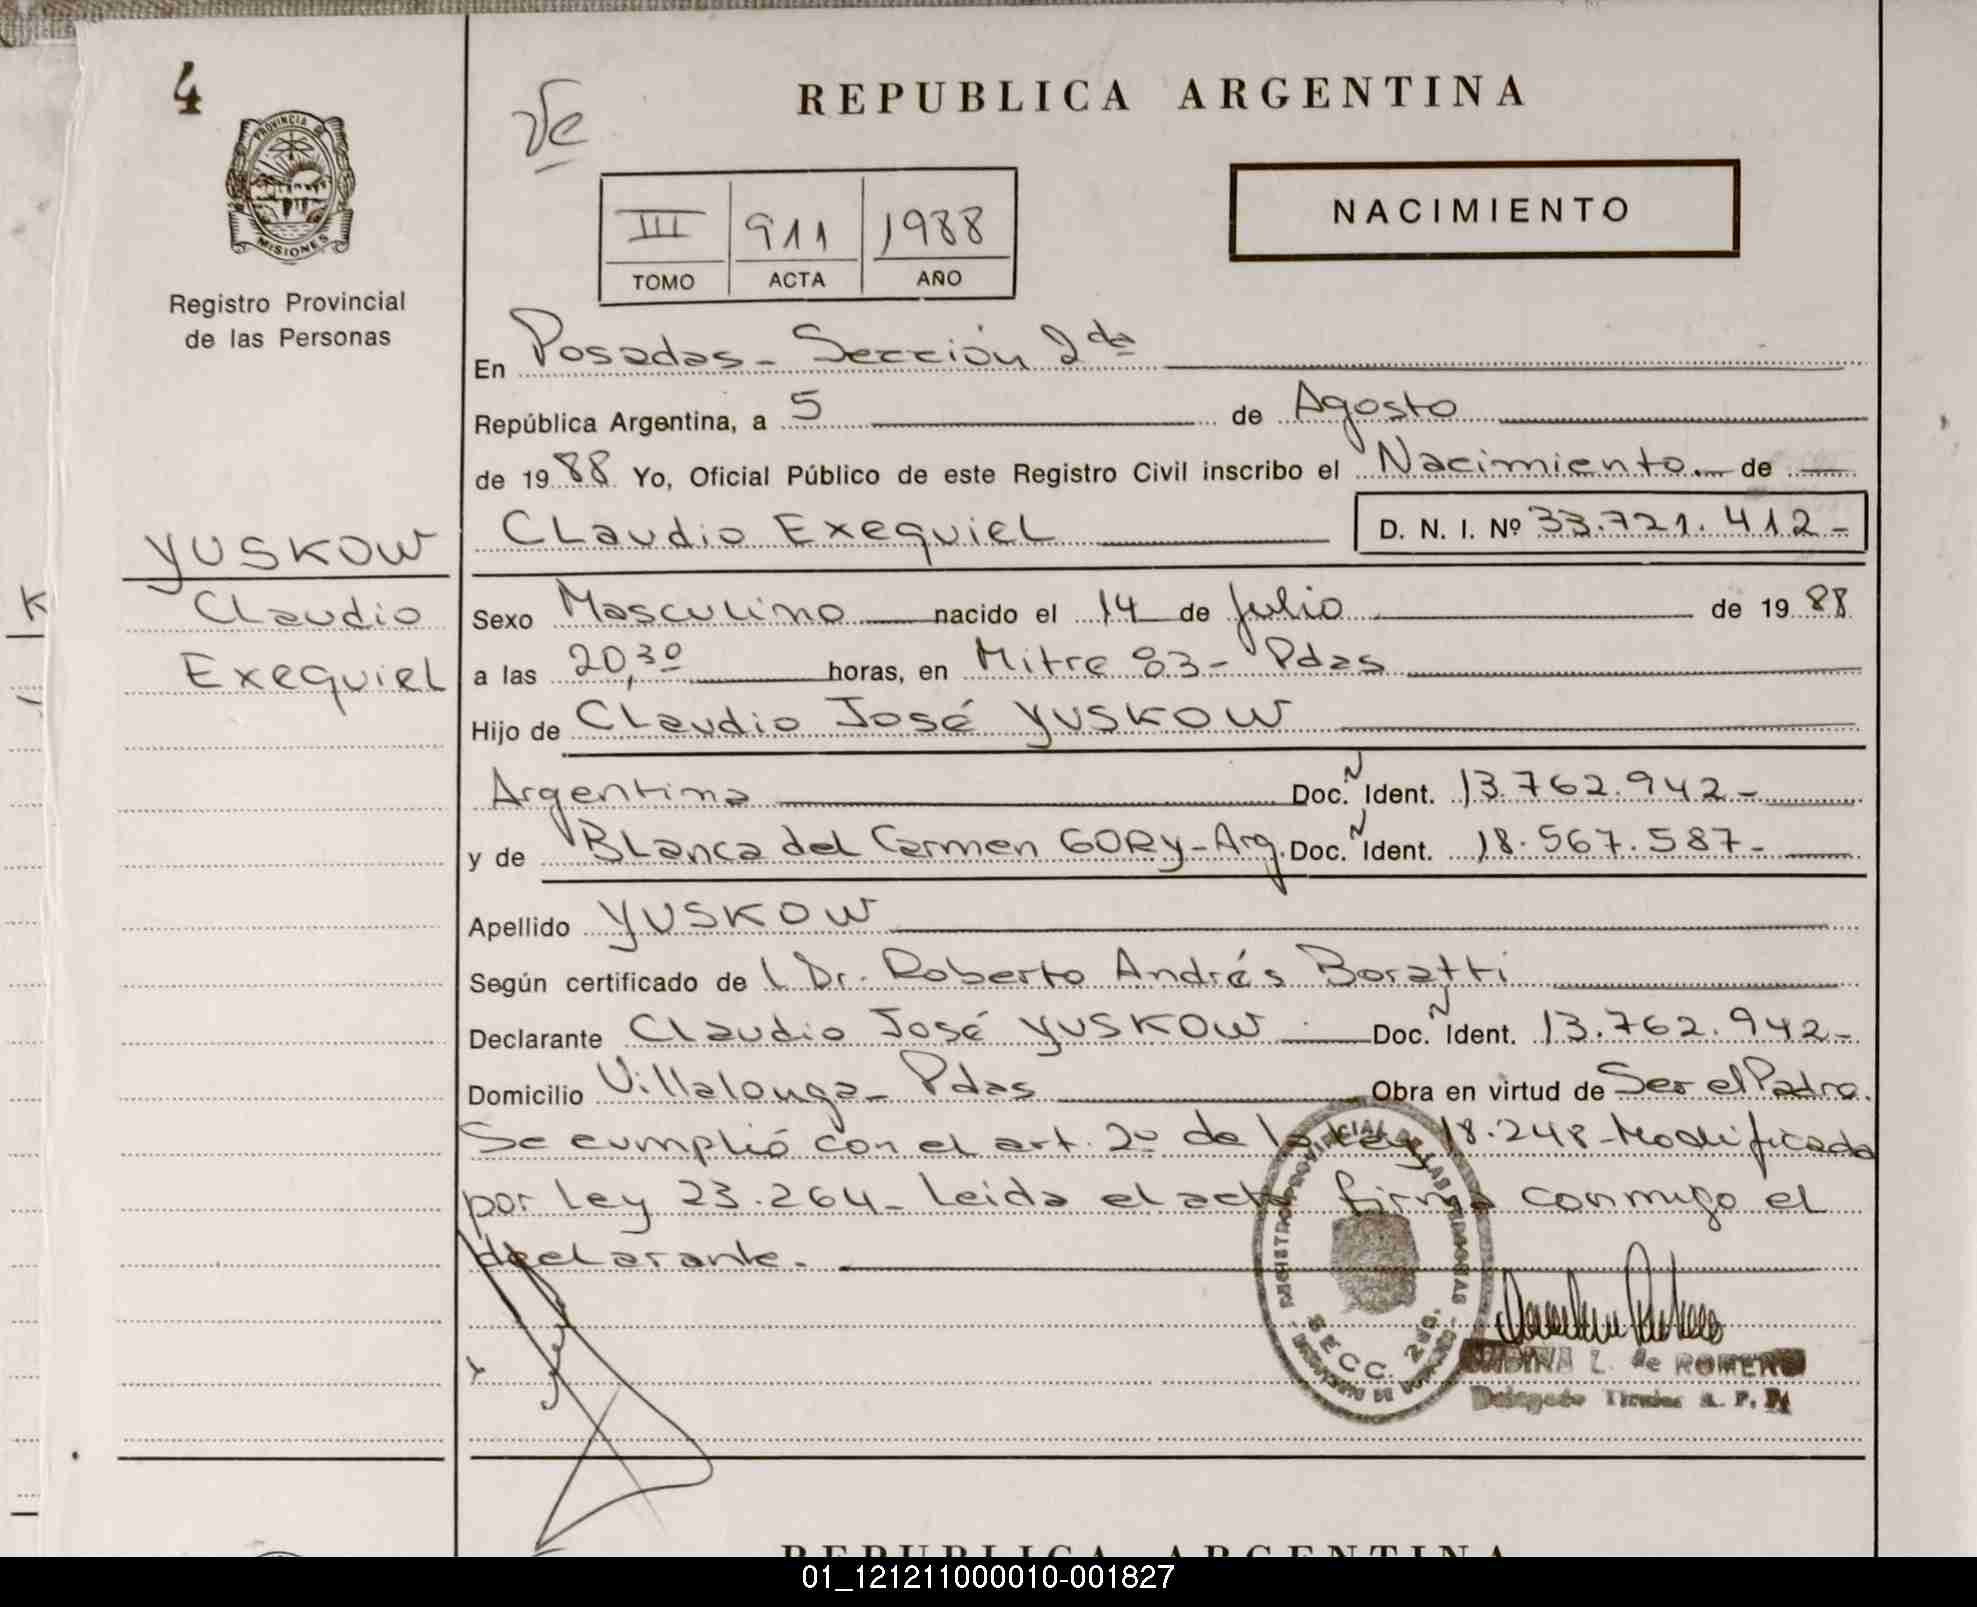 4
PROVINCIA DE
MISIONES
Registro Provincial
de las Personas
REPUBLICA ARGENTINA
NACIMIENTO
III 911 1988
TOMO ACTA AÑO
En Posadas - Sección 2da
República Argentina, a 5 de Agosto
de 1988 Yo, Oficial Público de este Registro Civil inscribo el Nacimiento. de
Claudio Exequiel D. N. I. Nº 33.721.412-
YUSKOW
Claudio
Exequiel
Sexo Masculino nacido el 14 de Julio de 1988
a las 20,30 horas, en Mitre 83- Pdas
Hijo de Claudio José YUSKOW
Argentina Doc. N Ident. 13.762.942-
y de Blanca del Carmen GORY-Arg. Doc. N Ident. 18.567.587-
Apellido YUSKOW
Según certificado de l Dr. Roberto Andrés Boratti
Declarante Claudio José YUSKOW Doc. N Ident. 13.762.942-
Domicilio Villalonga- Pdas Obra en virtud de Ser el Padre.
Se cumplió con el art. 2º de la Ley 18.248-Modificada
por Ley 23.264- leida el acta firma conmigo el
declarante.
SECC. 2da.
Z. de ROMERO
REPUBLICA ARGENTINA
01_121211000010-001827